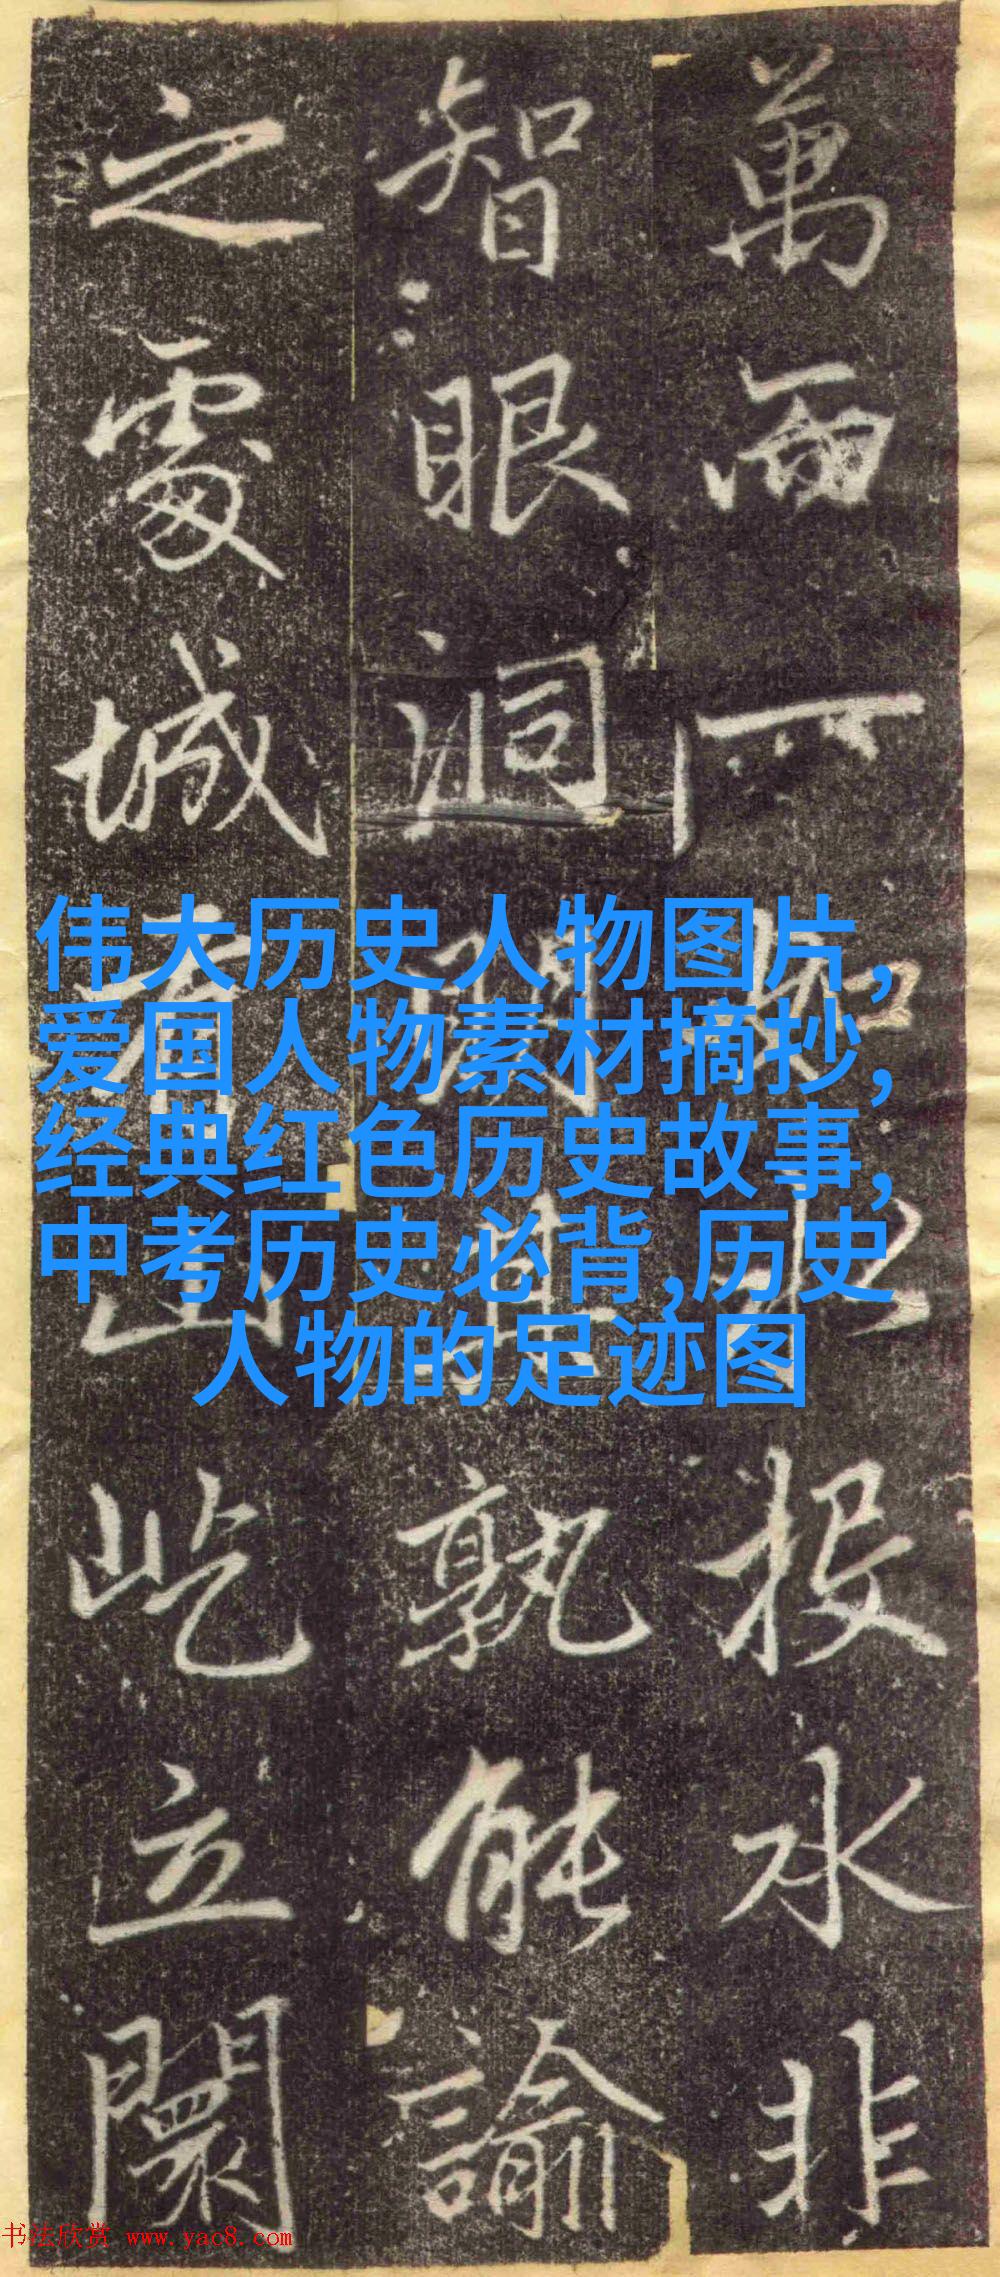 萬而一如水投水非
智眼洞開其孰能諭
之處城山屹立闤
伟大历史人物图片,
爱国人物素材摘抄,
经典红色历史故事,
中考历史必背,历史
人物的足迹图
书法欣赏 www.yac8.com